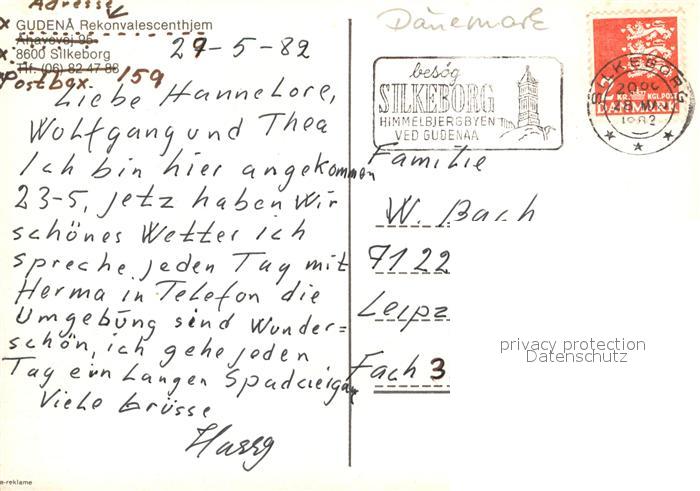 Adresse
x GUDENÅ Rekonvalescenthjem
Ahavevej 95
x. 8600 Silkeborg
Tlf. (06) 82 47 88
Postbox. 159
29-5-82
Liebe Hannelore,
Wolfgang und Thea
Ich bin hier angekommen
23-5, jetz haben wir
schönes Wetter ich
spreche jeden Tag mit
Herma in Telefon die
Umgebung sind wunder=
schön, ich gehe jeden
Tag ein Langen Spadcieigang
Viele Grüsse
a-reklame
Dänemark
besøg
SILKEBORG
HIMMELBJERGBYEN
VED GUDENAA
SILKEBORG
1982
2 KR. KGL. POST
DANMARK
Familie
W. Bach
7122
Leipz
Fach 3
privacy protection
Datenschutz